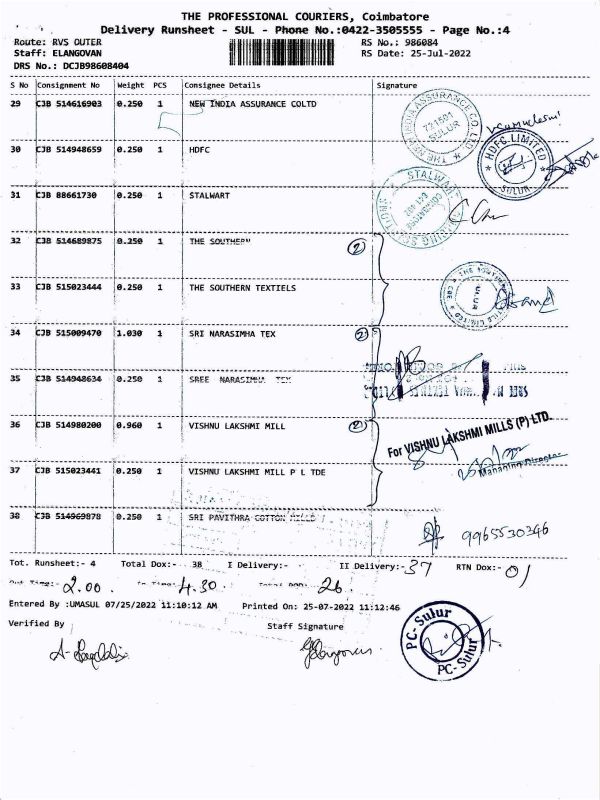 THE PROFESSIONAL COURIERS, Coimbatore
Delivery Runsheet - SUL - Phone No.:0422-3505555 - Page No.:4
Route: RVS OUTER RS No.: 986084
Staff: ELANGOVAN RS Date: 25-Jul-2022
DRS No.: DCJB98608404
S No Consignment No Weight PCS Consignee Details Signature
29 CJB 514616903 0.250 1 NEW INDIA ASSURANCE COLTD
THE NEW INDIA ASSURANCE CO LTD
721501
SULUR
30 CJB 514948659 0.250 1 HDFC
HDFC LIMITED
SULUR
31 CJB 88661730 0.250 1 STALWART
STALWART
32 CJB 514689875 0.250 1 THE SOUTHERN 2
33 CJB 515023444 0.250 1 THE SOUTHERN TEXTIELS
SULUR
34 CJB 515009470 1.030 1 SRI NARASIMHA TEX 2
35 CJB 514948634 0.250 1 SREE NARASIMHA TEX
36 CJB 514980200 0.960 1 VISHNU LAKSHMI MILL 2
For VISHNU LAKSHMI MILLS (P) LTD.
Managing Director
37 CJB 515023441 0.250 1 VISHNU LAKSHMI MILL P L TDE
38 CJB 514969878 0.250 1 SRI PAVITHRA COTTON MILLS 9965530346
Tot. Runsheet:- 4 Total Dox:- 38 I Delivery:- II Delivery:- 37 RTN Dox:- 01
Out Time:- 2.00 In Time:- 4.30 26
Entered By :UMASUL 07/25/2022 11:10:12 AM Printed On: 25-07-2022 11:12:46
Verified By Staff Signature
PC-Sulur
PC-Sulur